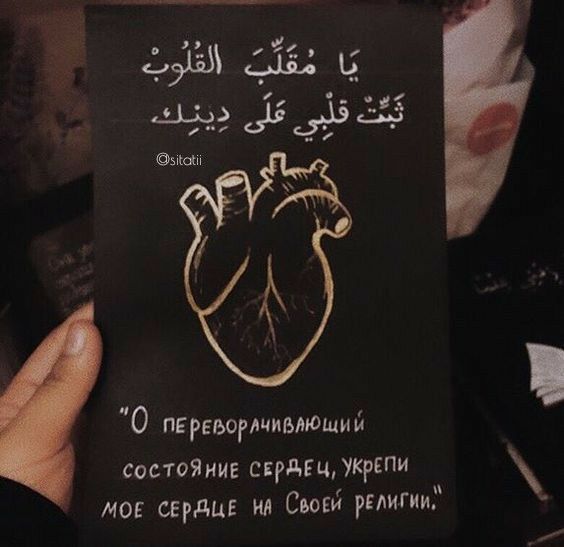 يَا مُقَلِّبَ القُلُوبْ
ثَبِّتْ قلْبِي عَلَى دِينِك
@sitatii
"О переворачивающий
состояние сердец, укрепи
мое сердце на Своей религии."